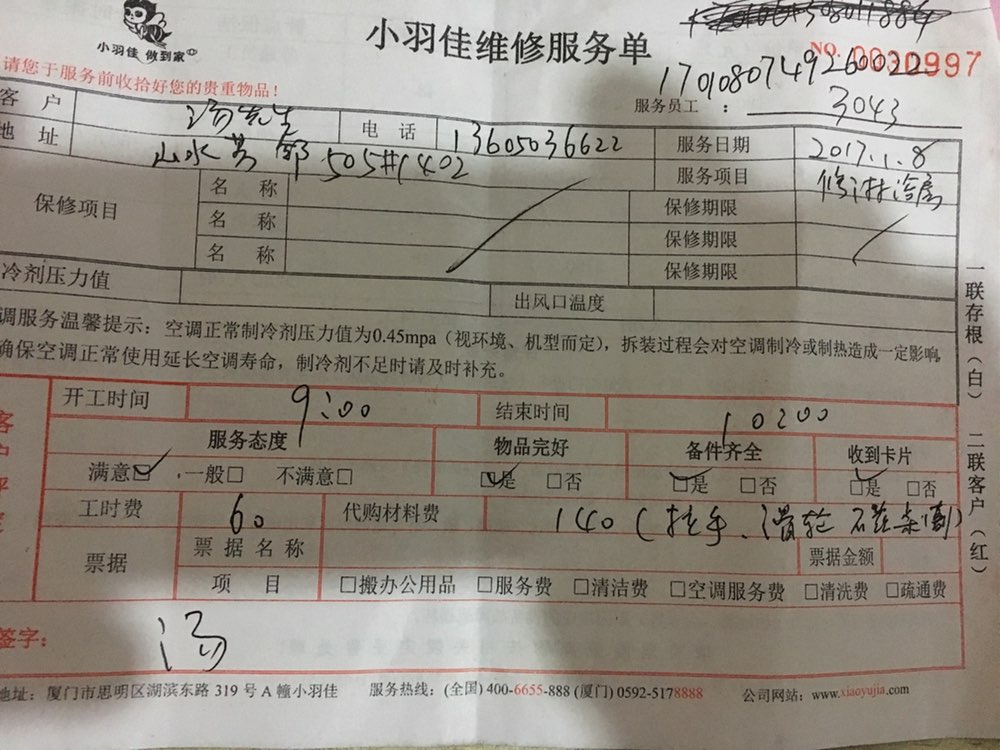 小羽佳 做到家
小羽佳维修服务单
NO. 0030997
请您于服务前收拾好您的贵重物品！
1701080749260022
服务员工： 3043
客户 汤先生 电话 13605036622 服务日期 2017.1.8
地址 山水芳邻 505#1402 服务项目
保修项目 名称 保修期限
名称 保修期限
名称 保修期限
冷剂压力值 出风口温度
调服务温馨提示：空调正常制冷剂压力值为0.45mpa（视环境、机型而定），拆装过程会对空调制冷或制热造成一定影响,
确保空调正常使用延长空调寿命，制冷剂不足时请及时补充。
开工时间 9:00 结束时间 10:00
服务态度 物品完好 备件齐全 收到卡片
满意☑ 一般□ 不满意□ ☑是 □否 ☑是 □否 ☑是 □否
工时费 60 代购材料费 140（拉手、滑轮
票据 票据名称 票据金额
项目 □搬办公用品 □服务费 □清洁费 □空调服务费 □清洗费 □疏通费
签字： 汤
地址：厦门市思明区湖滨东路 319 号 A 幢小羽佳 服务热线：(全国) 400-6655-888 (厦门) 0592-5178888 公司网站：www.xiaoyujia.com
一联存根（白） 二联客户（红）